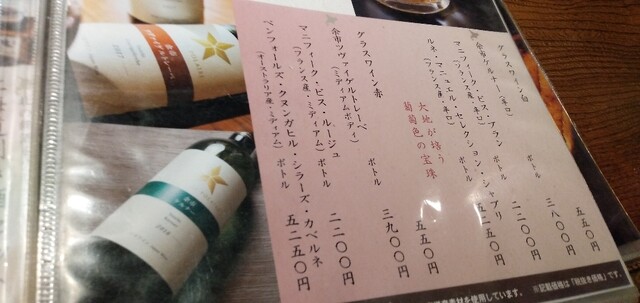 グラスワイン白 五五〇円
余市ケルナー(辛口) ボトル 三八〇〇円
マニフィーク・ビス・ブラン ボトル 二二〇〇円
(フランス産・辛口)
ルネ・マニュエル・セレクション・シャブリ ボトル 五二五〇円
(フランス産・辛口)
大地が培う
葡萄色の宝珠
グラスワイン赤 五五〇円
余市ツヴァイゲルトレーベ ボトル 三九〇〇円
(ミディアムボディ)
マニフィーク・ビス・ルージュ ボトル 二二〇〇円
(フランス産・ミディアム)
ペンフォールズ・クヌンガヒル・シラーズ・カベルネ ボトル 五二五〇円
(オーストラリア産・ミディアム)
素材を使用しています。
※記載価格は「税抜き価格」です。
余市
ケルナー
2008
余市
ツヴァイゲルトレーベ
2007